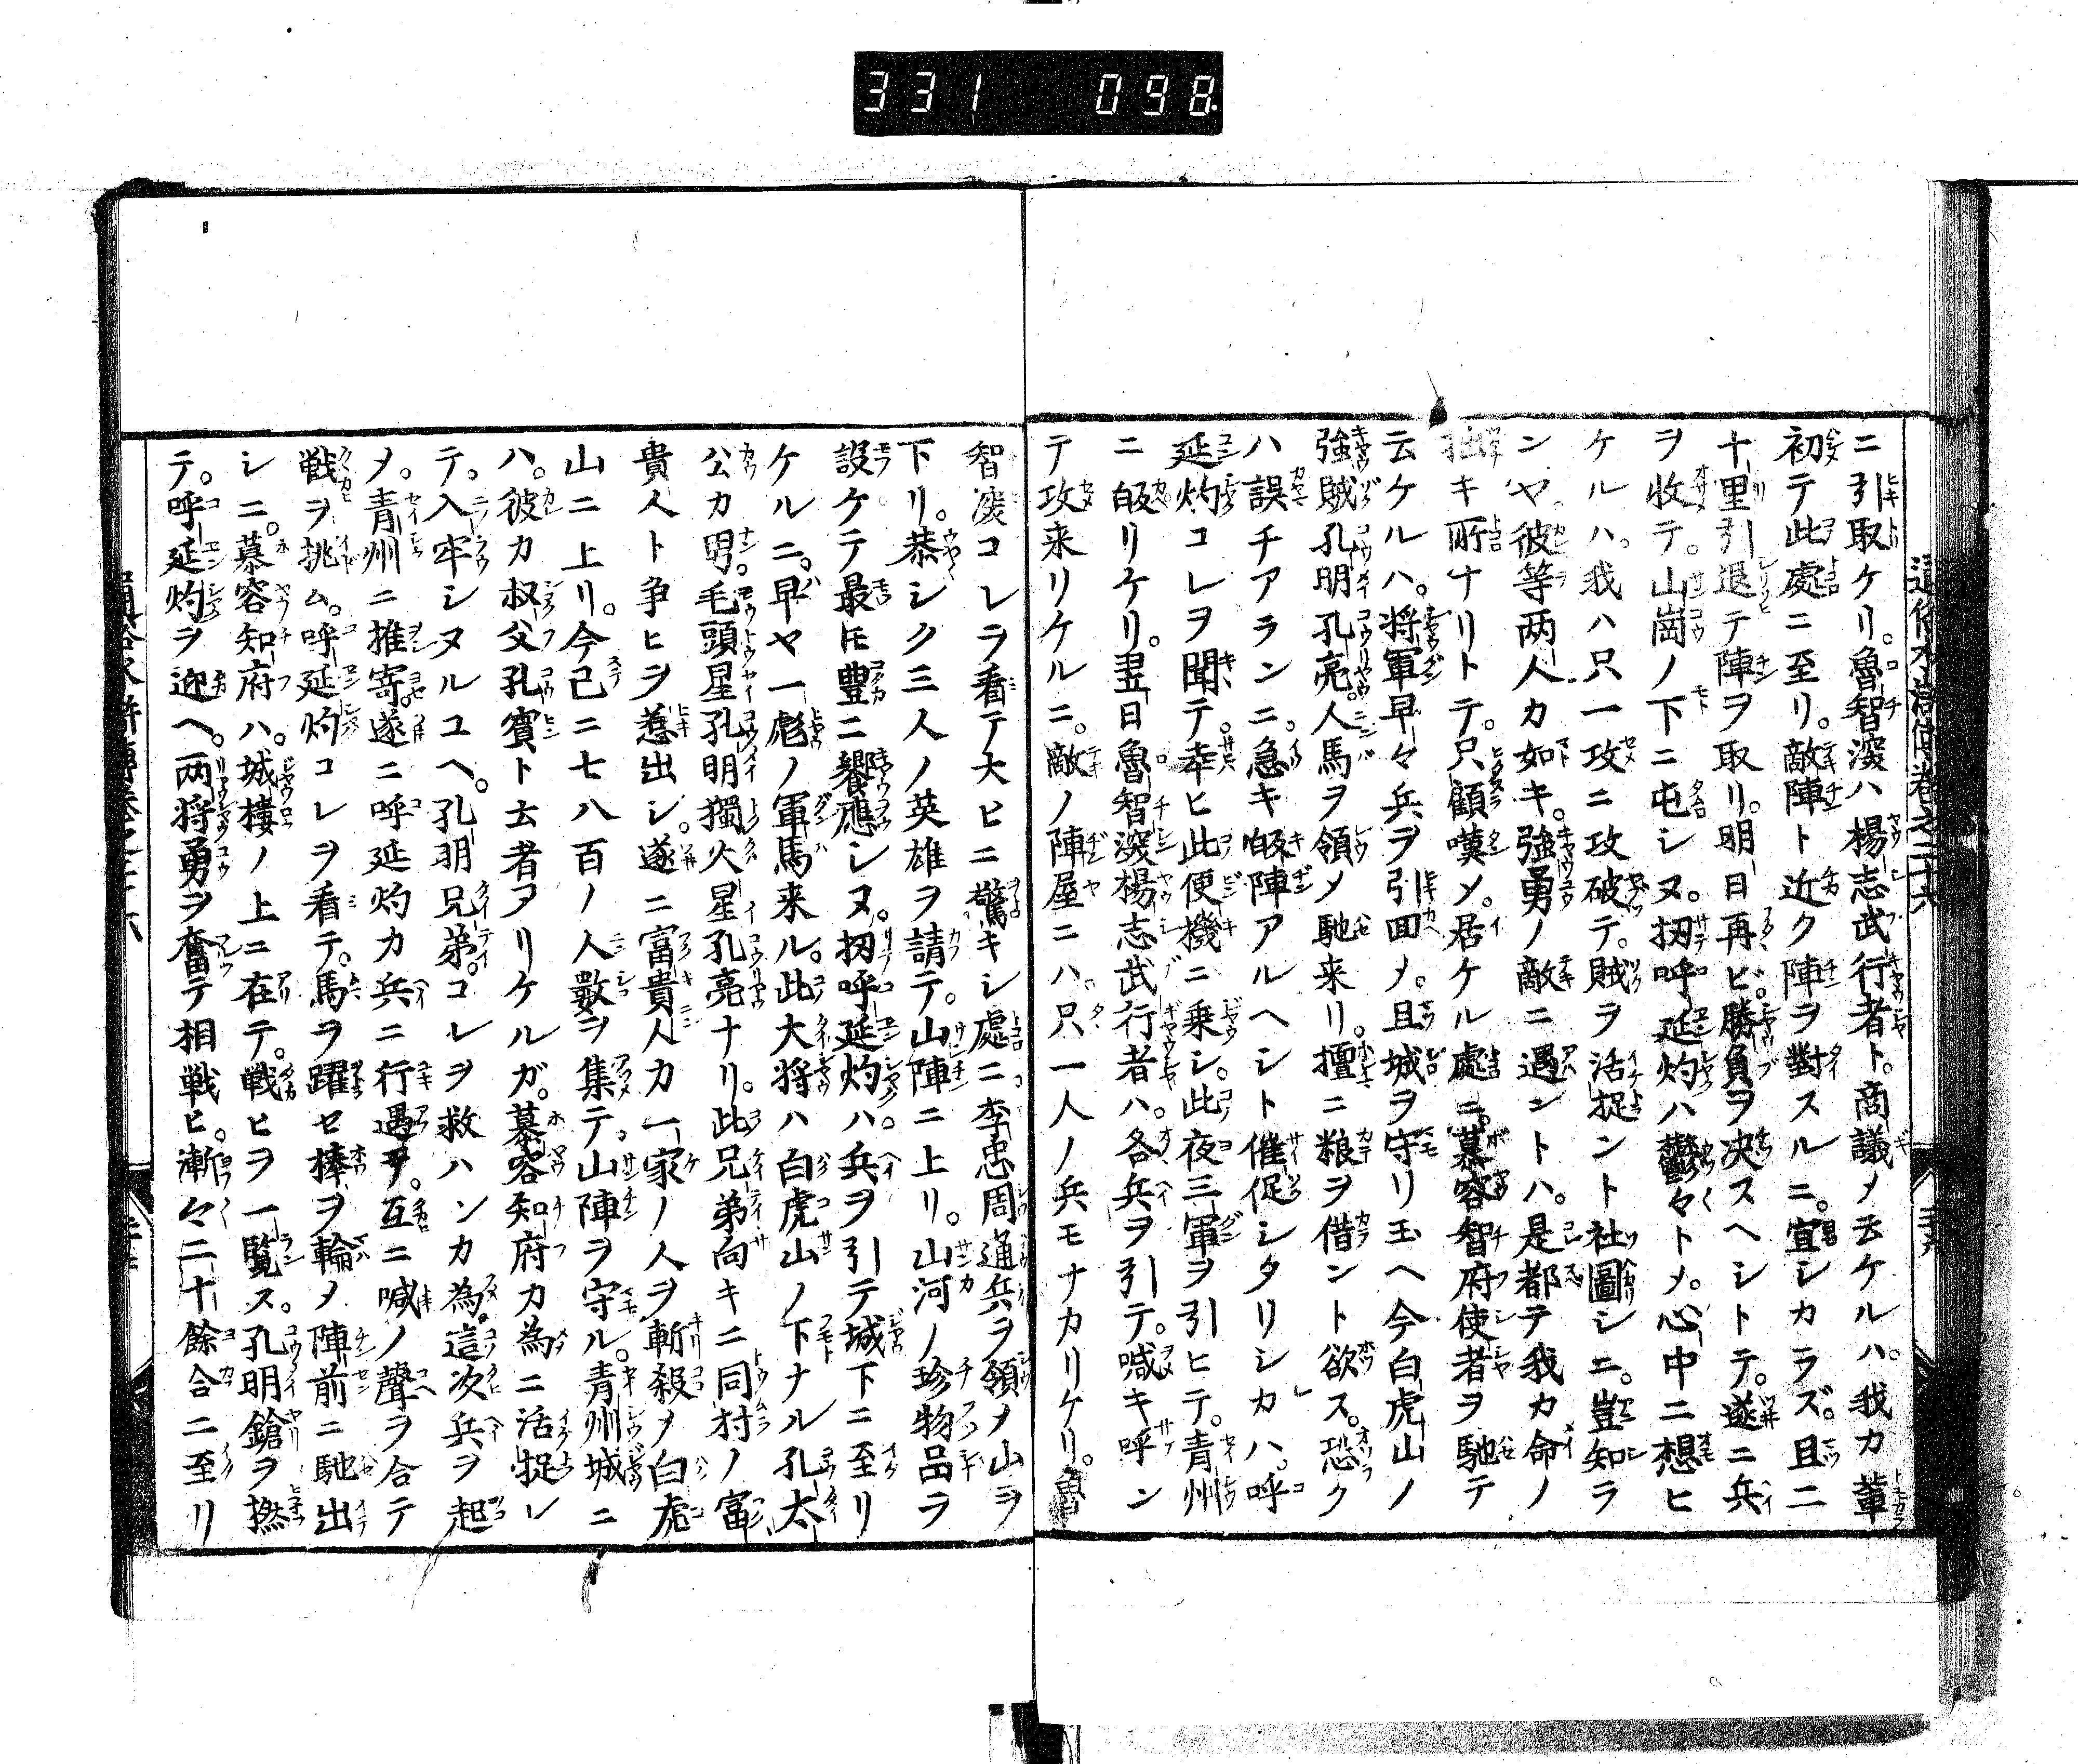 331 098
ニ引取ケリ。魯智深ハ楊志武行者ト。商議メ云ケルハ。我カ輩
初テ此處ニ至リ。敵陣ト近ク陣ヲ對スルニ。宜シカラズ。且二
十里引退テ陣ヲ取リ。明日再ビ。勝負ヲ決スヘシトテ。遂ニ兵
ヲ收テ。山崗ノ下ニ屯シヌ。扨呼延灼ハ鬱々トメ。心中ニ想ヒ
ケルハ。我ハ只一攻ニ攻破テ。賊ヲ活捉ント社圖シニ。豈知ラ
ンヤ彼等两人カ如キ。強勇ノ敵ニ遇ントハ。是都テ我カ命ノ
拙キ所ナリトテ。只顧嘆メ。居ケル處ニ。慕容智府使者ヲ馳テ
云ケルハ。將軍早々兵ヲ引回メ。且城ヲ守リ玉ヘ今白虎山ノ
強賊孔明孔亮。人馬ヲ領メ馳来リ。擅ニ粮ヲ借ント欲ス。恐ク
ハ誤チアランニ。急キ皈陣アルヘシト催促シタリシカハ。呼
延灼コレヲ聞テ。幸ヒ此便機ニ乗シ。此夜三軍ヲ引ヒテ。青州
ニ皈リケリ。翌日魯智深楊志武行者ハ。各兵ヲ引テ。喊キ呼ン
テ攻来リケルニ。敵ノ陣屋ニハ。只一人ノ兵モナカリケリ。魯
智深コレヲ看テ大ヒニ驚キシ處ニ李忠周通兵ヲ領メ山ヲ
下リ。恭シク三人ノ英雄ヲ請テ。山陣ニ上リ。山河ノ珍物品ヲ
設ケテ最モ豊ニ饗應シヌ。扨呼延灼ハ。兵ヲ引テ城下ニ至リ
ケルニ。早ヤ一彪ノ軍馬来ル。此大將ハ白虎山ノ下ナル孔太
公カ男。毛頭星孔明獨火星孔亮ナリ。此兄弟向キニ同村ノ富
貴人ト争ヒヲ惹出シ。遂ニ富貴人カ一家ノ人ヲ斬殺メ白虎
山ニ上リ。今已ニ七八百ノ人數ヲ集テ。山陣ヲ守ル。青州城ニ
ハ。彼カ叔父孔賓ト云者アリケルガ。慕容知府カ為ニ活捉レ
テ。入牢シヌルユヘ。孔明兄弟。コレヲ救ハンカ為。這次兵ヲ起
メ。青州ニ推寄。遂ニ呼延灼カ兵ニ行遇テ。互ニ喊ノ聲ヲ合テ
戦ヲ挑ム。呼延灼コレヲ看テ。馬ヲ躍セ棒ヲ輪メ陣前ニ馳出
シニ。慕容知府ハ。城樓ノ上ニ在テ。戦ヒヲ一覧ス。孔明鎗ヲ撚
テ。呼延灼ヲ迎ヘ。两將勇ヲ奮テ相戦ヒ。漸々二十餘合ニ至リ